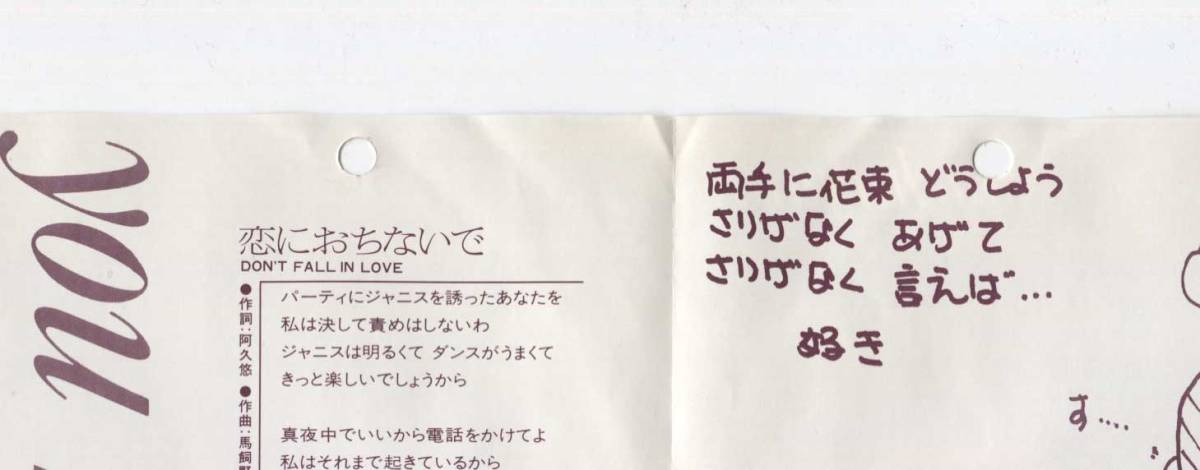 you
恋におちないで
DON'T FALL IN LOVE
●作詞:阿久悠 ●作曲:馬飼野
パーティにジャニスを誘ったあなたを
私は決して責めはしないわ
ジャニスは明るくて ダンスがうまくて
きっと楽しいでしょうから
真夜中でいいから電話をかけてよ
私はそれまで起きているから
両手に花束 どうしよう
さりげなく あげて
さりげなく 言えば…
好き
す….